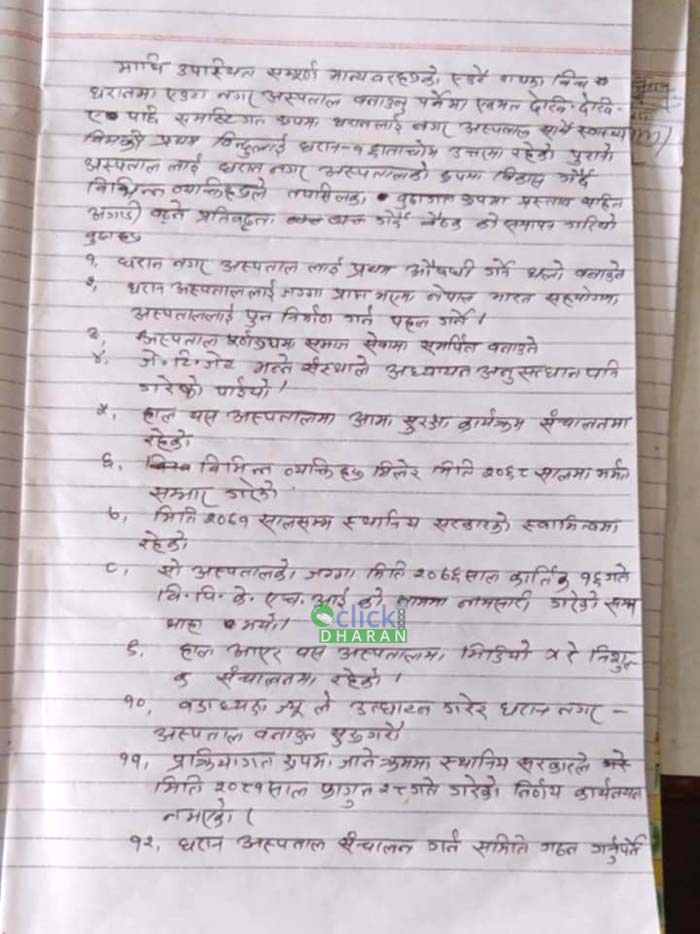 माथि उपस्थित सम्पूर्ण मान्यवरहरुको एउटै नाराका बिच
धरानमा एउटा नगर अस्पताल बनाउनु पर्नेमा एकमत देखि-देखि-
ए पछि समष्टिगत रुपमा धरानलाई नगर अस्पताल साथै स्वास्थ्य
बिमाको प्रथम विन्दुलाई धरान-१ छाताचोक उत्तरमा रहेको पुरानो
अस्पताल लाई धरान नगर अस्पतालको रुपमा विकास गर्दै
विभिन्न व्यक्तिहरुले तपसिलका बुदागत रुपमा प्रस्ताव सहित
अगाडी बढ्ने प्रतिवद्धता व्यक्त गर्दै बैठक को समापन गरियो
बुदाहरु
१, धरान नगर अस्पताल लाई प्रथम औषधी गर्ने थलो बनाउने
२, धरान अस्पताललाई जग्गा प्राप्त भएमा नेपाल भारत सहयोगमा
अस्पताललाई पुन निर्माण गर्न पहल गर्ने।
३, अस्पताल पूर्णरुपमा समाज सेवामा समर्पित बनाउने
४, जे.टि.जेड भन्ने संस्थाले अध्ययन अनुसन्धान पनि
गरेको पाईयो।
५, हाल यस अस्पतालमा आमा सुरक्षा कार्यक्रम संचालनमा
रहेको
६, विभिन्न व्यक्तिहरु मिलेर मिति २०६८ सालमा मर्मत
सम्भार गरेको
७, मिति २०६१ सालसम्म स्थानिय सरकारको स्वामित्वमा
रहेको
८, सो अस्पतालको जग्गा मिति २०७६ साल कार्तिक १६ गते
वि.पि.के. एच.आई को नाममा नामसारी गरेको सम्म
थाहा भयो।
click
DHARAN
९, हाल आएर यस अस्पतालमा भिडियो X रे निशुल्
क संचालनमा रहेको।
१०, वडाध्यक्ष ज्यू ले उद्घाटन गरेर धरान नगर -
अस्पताल बनाउन सुरु गरौ
११, प्रक्रियागत रुपमा जाने क्रममा स्थानिय सरकारले
मिति २०८१ साल फागुन २८ गते गरेको निर्णय कार्यन्वयन
नभएको।
१२, धरान अस्पताल संचालन गर्न समिति गठन गर्नुपर्ने